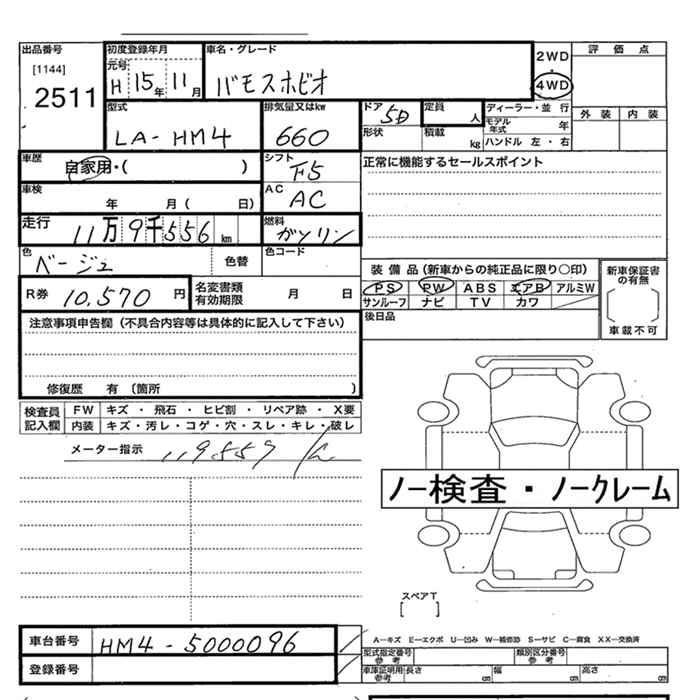 出品番号 初度登録年月 車名・グレード 2WD 評価点
[1144] 元号 H 15年 11月 バモスホビオ 4WD
2511
型式 排気量又はkw ドア 5D 定員 人 ディーラー・並行 外装 内装
LA-HM4 660 形状 積載 kg モデル年式 年
ハンドル 左・右
車歴 自家用・( ) シフト F5 正常に機能するセールスポイント
車検 年 月( 日) AC AC
走行 11万9千556km 燃料 ガソリン
色 ベージュ 色替 色コード
装備品(新車からの純正品に限り○印) 新車保証書の有無
R券 10,570円 名変書類有効期限 月 日 PS PW ABS エアB アルミW
サンルーフ ナビ TV カワ
注意事項申告欄(不具合内容等は具体的に記入して下さい) 後日品 車載不可
修復歴 有(箇所 )
検査員記入欄 FW キズ・飛石・ヒビ割・リペア跡・X要
内装 キズ・汚レ・コゲ・穴・スレ・キレ・破レ
メーター指示 119.557
ノー検査・ノークレーム
スペアT
[ ]
車台番号 HM4-5000096
A―キズ E―エクボ U―凹み W―補修跡 S―サビ C―腐食 XX―交換済
登録番号 型式指定番号参考 類別区分番号参考
車庫証明用参考 長さ cm 幅 cm 高さ cm